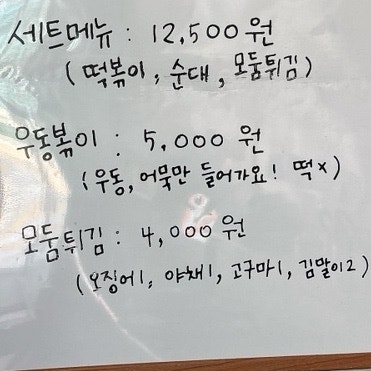 세트메뉴 : 12,500원
(떡볶이, 순대, 모둠튀김)
우동볶이 : 5,000원
(우동, 어묵만 들어가요! 떡x)
모둠튀김 : 4,000원
(오징어1, 야채1, 고구마1, 김말이2)